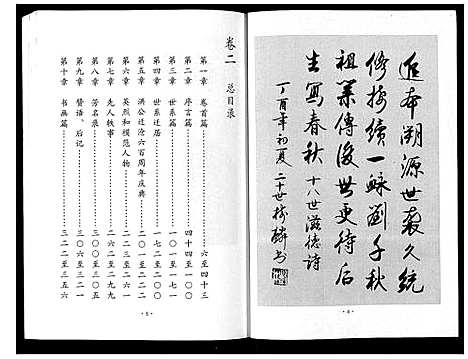 追本溯源世袭久统
修接续一脉刘子秋
祖业傳後世更待后
生寫春秋 十八世滋德诗
丁酉年初夏 二十世 书
卷二 总目录
第一章 卷首篇 六至四十三
第二章 序言篇 四十四至一〇〇
第三章 世系篇 一〇一至一七一
第四章 世系迁居 一七二至二一〇
第五章 洪公迁沧六百周年庆典
第六章 英烈和模范人物
第七章 先人轶事 二六二至二九九
第八章 芳名录 三〇〇至三〇五
第九章 赞语、后记 三〇六至三二一
第十章 书画篇 三二二至三五六